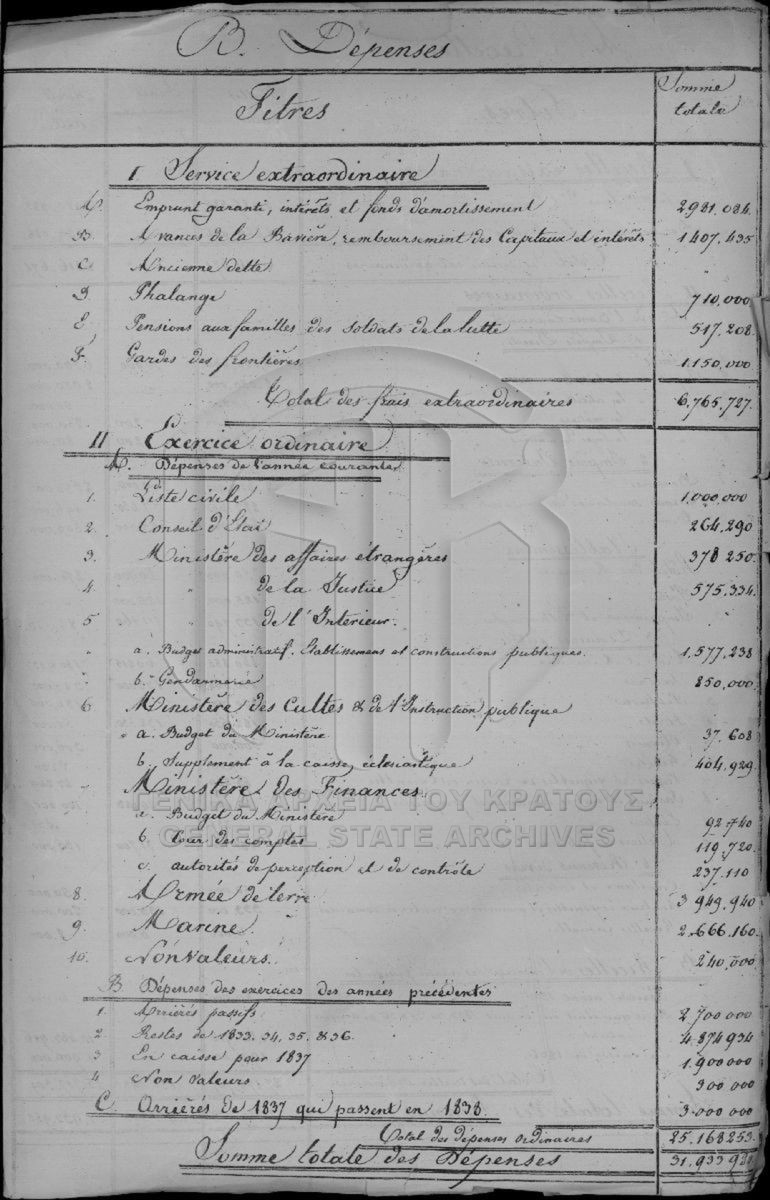 B. Dépenses
Titres
Somme
totale
I Service extraordinaire
A. Emprunt garanti, intérêts et fonds d'amortissement 2981.084.
B. Avances de la Bavière, remboursement des Capitaux et intérêts 1407.435
C. Ancienne dette
D. Phalange 710,000
E. Pensions aux familles des soldats de la lutte 517.208.
F. Gardes des frontières 1.150,000
Total des frais extraordinaires 6,765.727.
II Exercice ordinaire
A. Dépenses de l'année courante
1. Liste civile 1.000,000
2. Conseil d'État 264,290
3. Ministère des affaires étrangères 378 250.
4 " de la Justice 575.334.
5 " de l'Interieur.
" a. Budget administratif. Etablissemens et constructions publiques. 1.577,238
" b. Gendarmerie 850,000.
6 Ministère des Cultes & de l'Instruction publique
" a. Budget du Ministère 37.608
b. Supplement à la caisse éclesiastique 404,929
7 Ministère des Finances.
a. Budget du Ministère 92.740
b. cour des comptes 119,720.
c. autorités de perception et de contrôle 237.110
8. Armée de terre 3 949.940
9. Marine. 2.666.160.
10. Non Valeurs. 240,000
B Dépenses des exercices des années précédentes
1. Arriérés passifs 2 700 000
2. Restes de 1833. 34, 35. & 36. 4 874 934
3 En caisse pour 1837 1.900000
4 Non valeurs 300 000
C. Arriérés de 1837 qui passent en 1838. 3.000 000
Total des dépenses ordinaires 25.168253.
Somme totale des Dépenses 31.933
ΓΕΝΙΚΑ ΑΡΧΕΙΑ ΤΟΥ ΚΡΑΤΟΥΣ
GENERAL STATE ARCHIVES